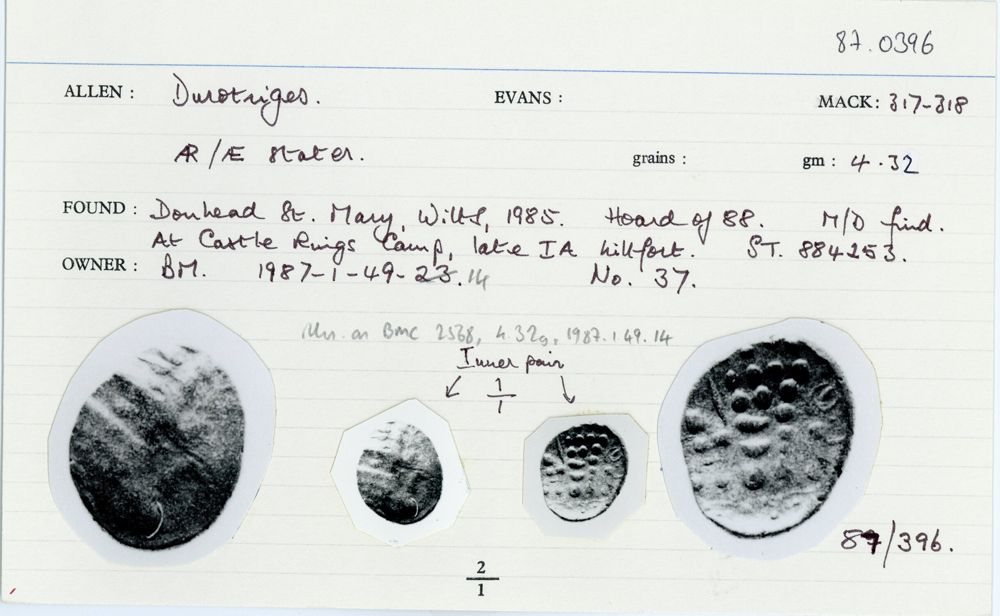 87.0396
ALLEN : Durotriges. EVANS : MACK: 317-318
AR/Æ Stater. grains : gm : 4.32
FOUND : Donhead St. Mary, Wilts, 1985. Hoard of 88. M/D find.
At Castle Rings Camp, late IA hillfort. ST. 884253.
OWNER : BM. 1987-1-49-23.14 No. 37.
Illus. on BMC 2568, 4.32g, 1987.1.49.14
Inner pair
1/1
87/396.
2/1